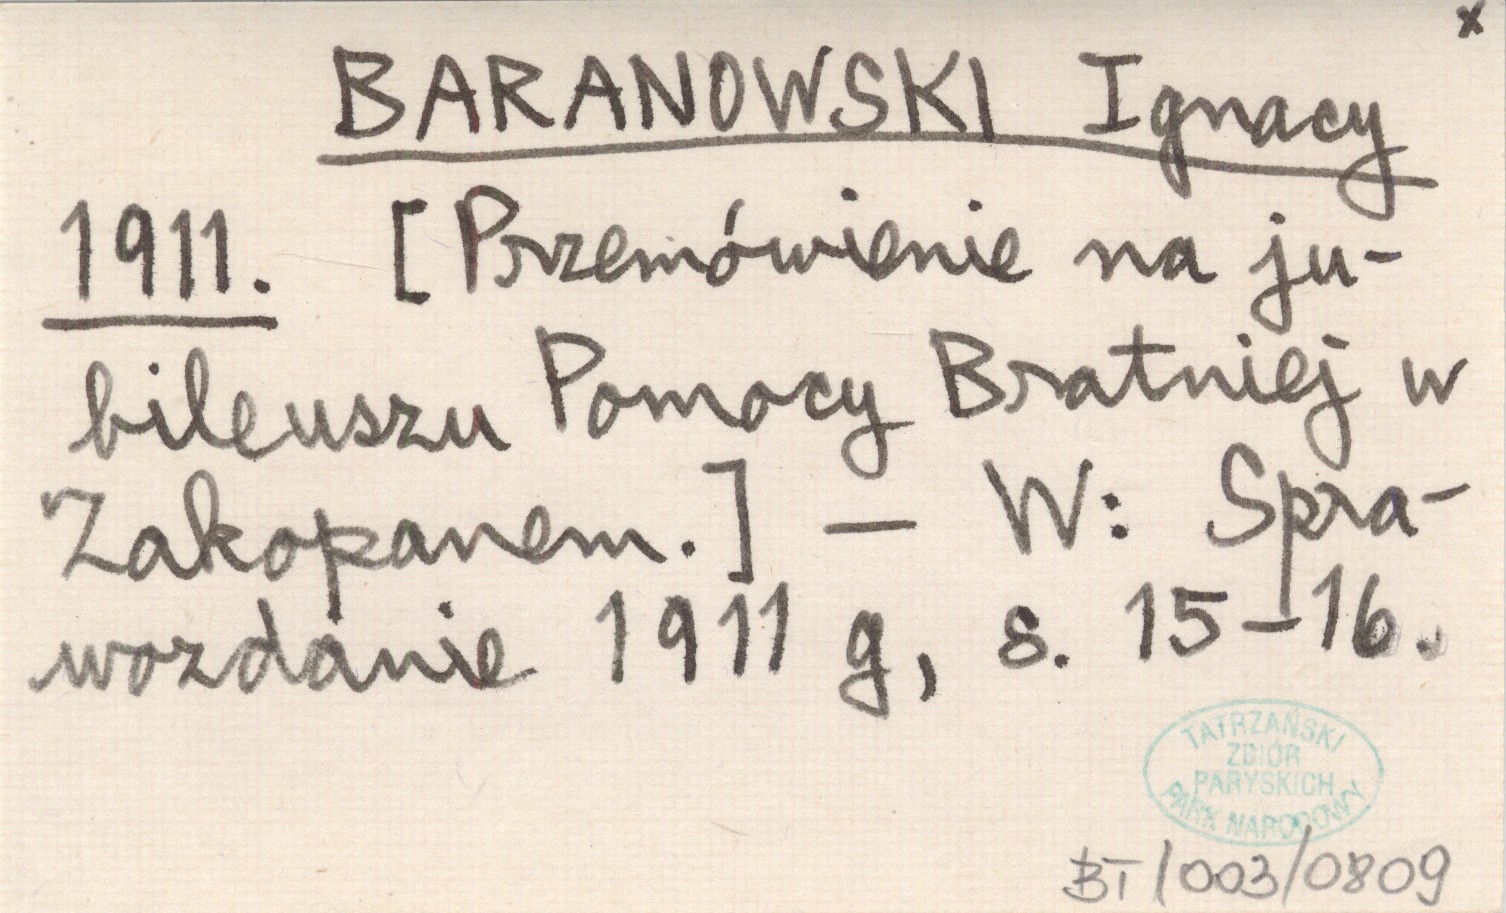 x
BARANOWSKI Ignacy
1911. [Przemówienie na ju-
bileuszu Pomocy Bratniej w
Zakopanem.] — W: Spra-
wozdanie 1911 g, s. 15-16.
TATRZAŃSKI
ZBIÓR
PARYSKICH
PARK NARODOWY
BT/003/0809